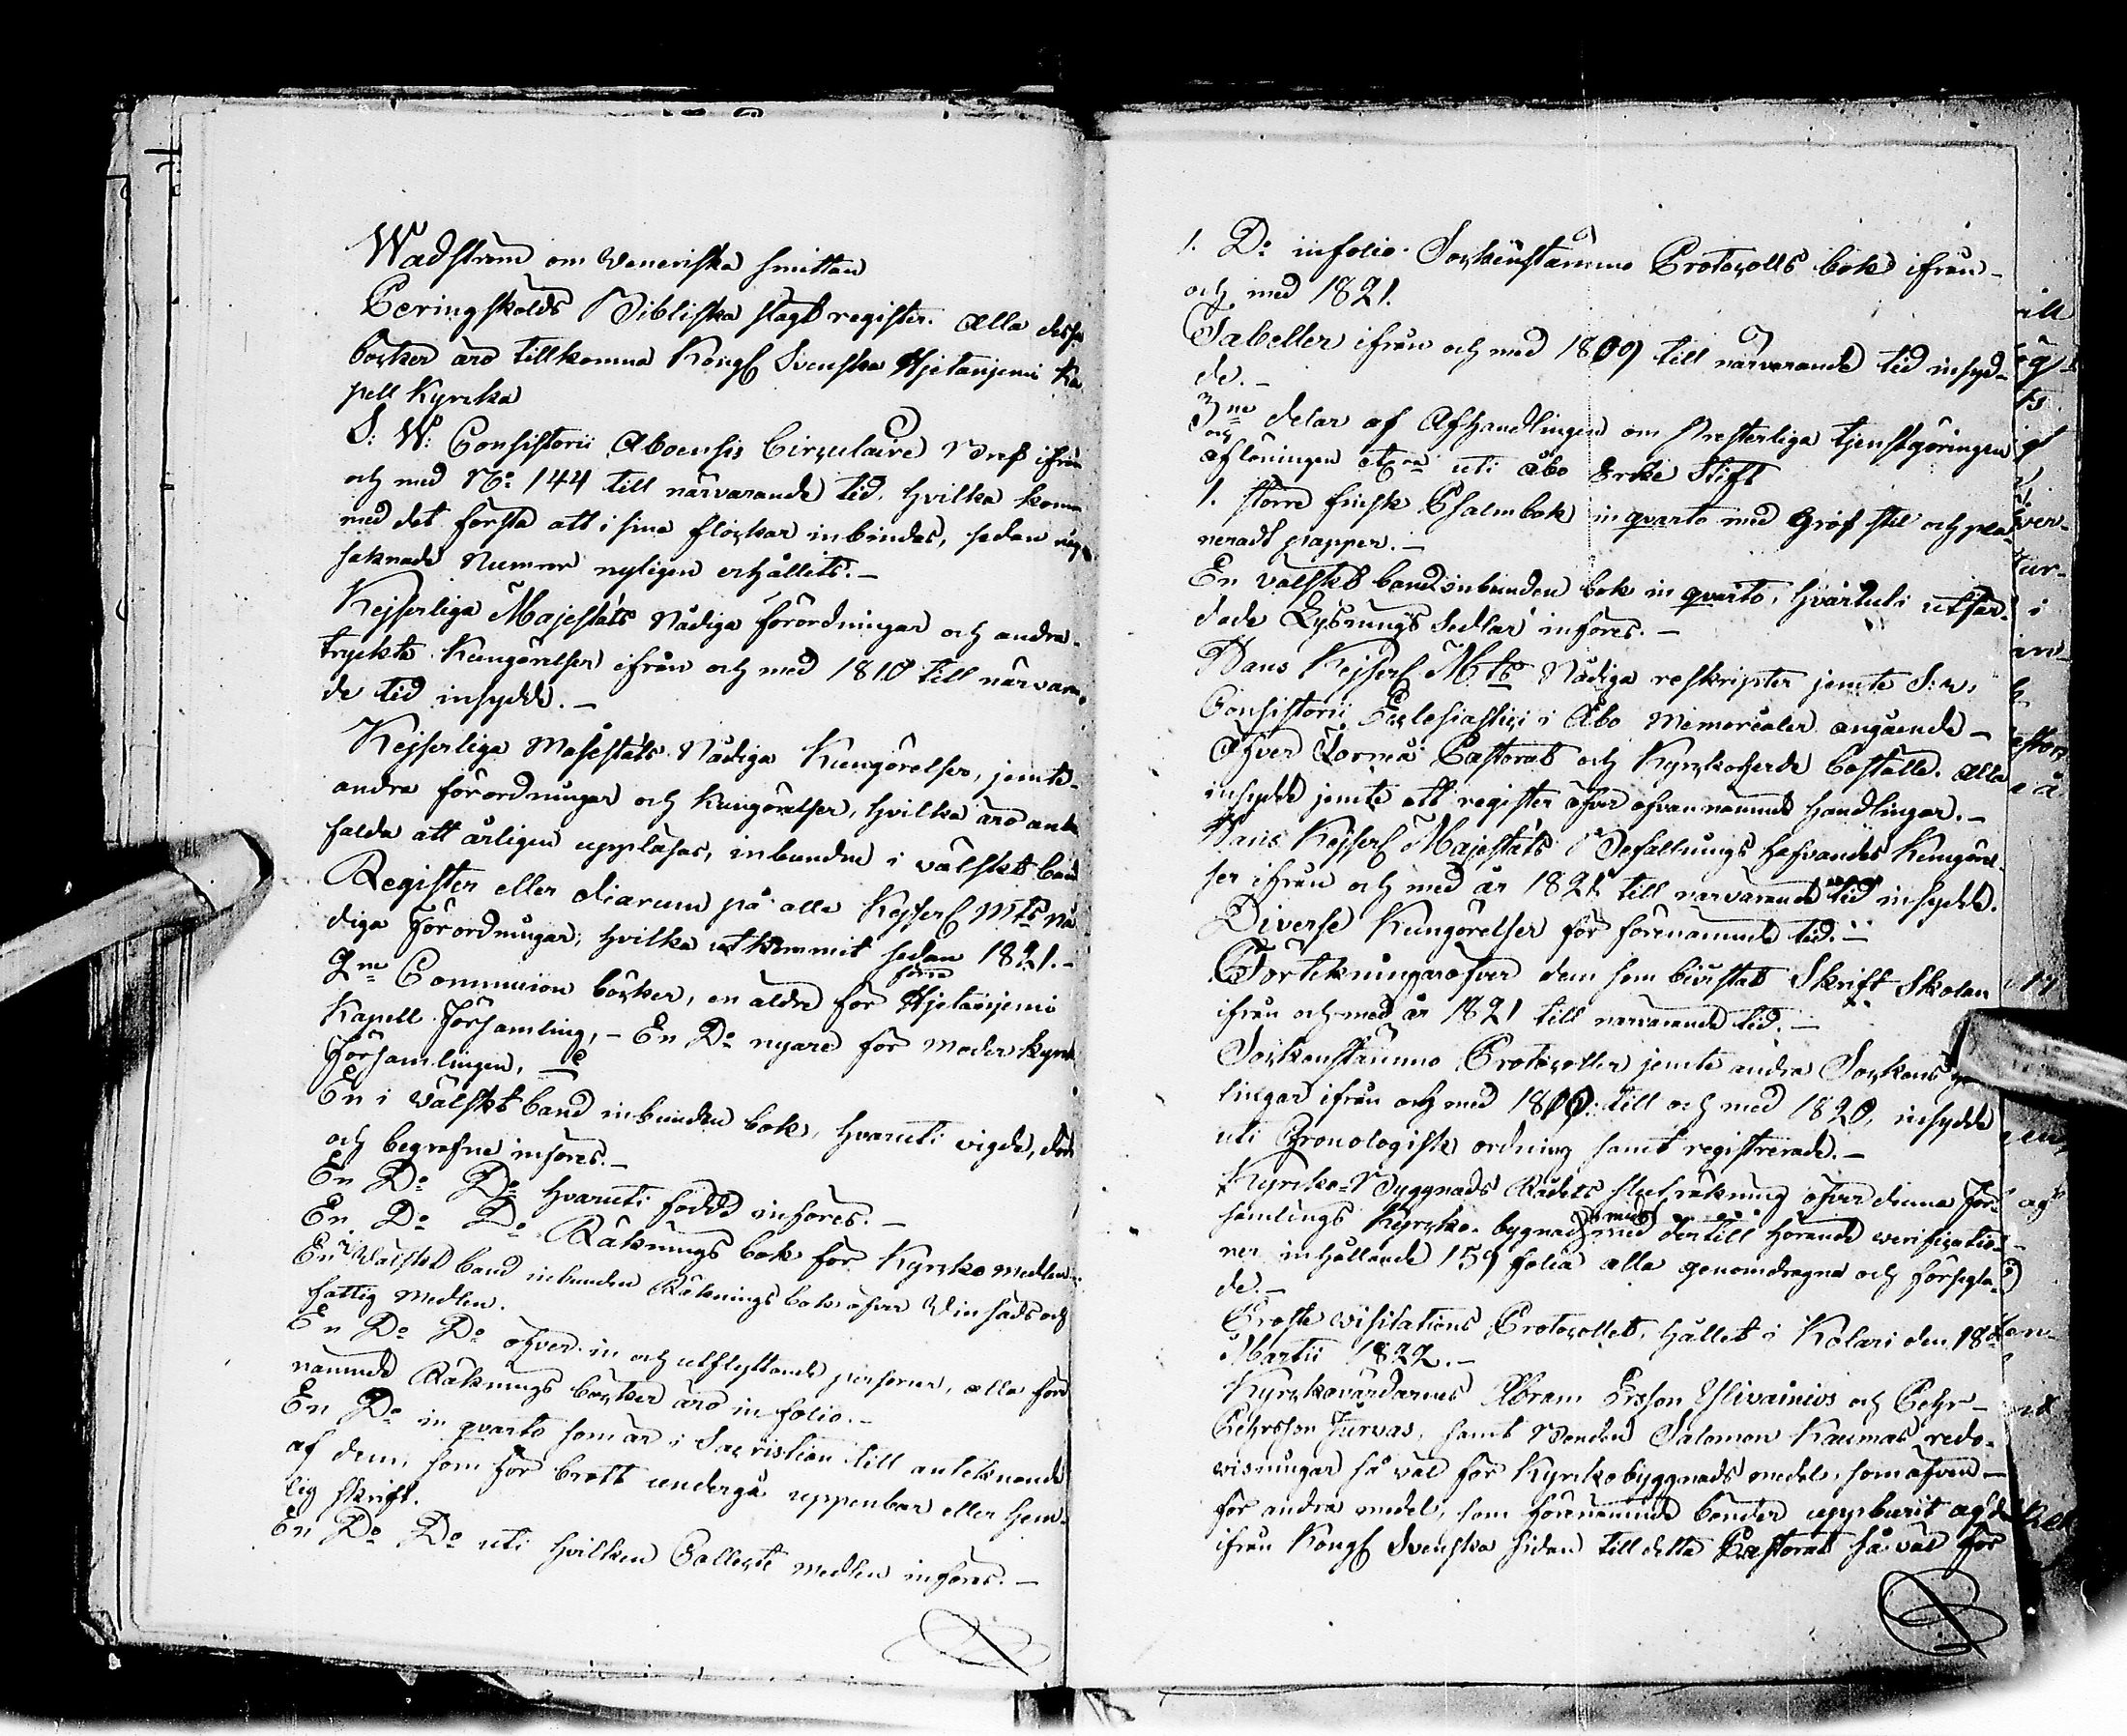 Wadström om Veneriska smittan
Peringskölds Bibliska slägt register. Alla dessa
böcker äro tillkomna Kongl Svenska Hjetanjemi Ka
pell Kyrcka
S: W: Consistorii Aboensis Circulaire Bref ifrån
och med No: 144 till närvarande tid, hvilka komma
med det första att i sina flockar inbindas, sedan
saknade Numror nyligen erhållits.-
Kejserliga Majestäts Nådiga förordningar och andra
tryckta Kungörelser ifrån och med 1810 till närvaran
de tid insydde.-
Kejserliga Majestäts Nådiga Kungörelser, jemte
andra förordningar och Kungörelser, hvilka äro anbe
falda att årligen uppläsas, inbundne i välskt band
Register eller diarium på alla Kejserl Mts Nå
diga Förordningar, hvilka utkommit sedan 1821.-
2ne Communion böcker, en äldre för förra Hjetanjemi
Kapell Församling,- En Do nyare för moderkyrk
Församlingen,-
En i Välskt band inbunden bok, hvaruti vigde, döde
och begrafne införes.-
En Do Do hvaruti födde införes.-
En Do Do Räknings bok för Kyrcko medlen
En i Välskt band inbunden Räknings bok öfver Vinsäds och
fattig medlen.
En Do Do öfver in och utflyttande personer, alla före
nämnde Räknings böcker äro in folio.-
En Do in qvarto som är i Sacristian till antecknande
af dem, som för brott undergå uppenbar eller hem-
lig skrift.
En Do Do uti hvilken Collecte medlen införes.-
1. Do infolio Sockenstämmo Protocolls bok ifrån
och med 1821.
Tabeller ifrån och med 1809 till närvarande tid insyd-
de.-
3ne delar af Afhandlingen om Presterliga tjenstgöringen
och aflöningen etcra uti Åbo Erke Stift
1. större finsk Psalmbok in qvarto med grof stil och pla-
neradt papper.-
En välskt band inbunden bok in qvarto, hvaruti utfär-
dade Lysnings Sedlar införes.-
Hans Kejserl Mts Nådiga reskripter jemte S: W:
Consistorii Ecclesiastici i Åbo Memorialer angående-
Öfver Torneå Pastorat och Kyrckoherde Boställe. Alla
insydde jemte ett register öfver ofvannämnde handlingar.-
Hans Kejserl Majestäts Befallnings hafvandes Kungörel
ser ifrån och med år 1821 till närvarande tid insydde.
Diverse Kungörelser för förenämnde tid.-
Förtekningar öfver dem som bivistat Skrift Skolan
ifrån och med år 1821 till närvarande tid.-
Sockenstämmo Protocoller jemte andra Sockens
lingar ifrån och med 1809 till och med 1820, insydde
uti Cronologisk ordning samt registrerade.-
Kyrcko-Byggnads Rådets sluträkning öfver denna För-
samlings Kyrcko-bygnad med dertill hörande verificatio-
ner inhållande 159 folia alla genomdragna och försegla-
de.-
Proste visitations Protocollet, hållet i Kolari den 18de
Martii 1822.-
Kyrckovärdarnes Abram Ersson Ylivainios och Pehr
Pehrsson Jurvas, samt Bonden Salomon Kaumas redo-
visningar så väl för Kyrckobyggnads medel, som äfven-
för andra medel, som förenämnde bönder uppburit
ifrån Kongl Svenska sidan till detta Pastorat så väl för